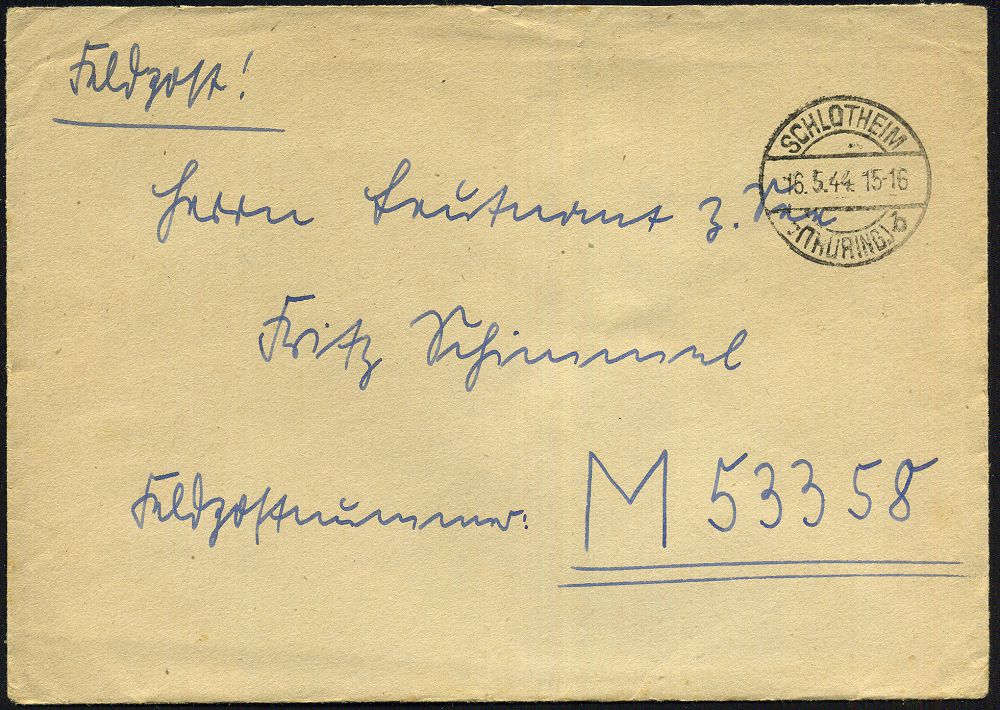 Feldpost!
SCHLOTHEIM
16.5.44 15-16
(THÜRING.) b
Herrn Leutnant z. See
Fritz Schimmel
Feldpostnummer: M 53358